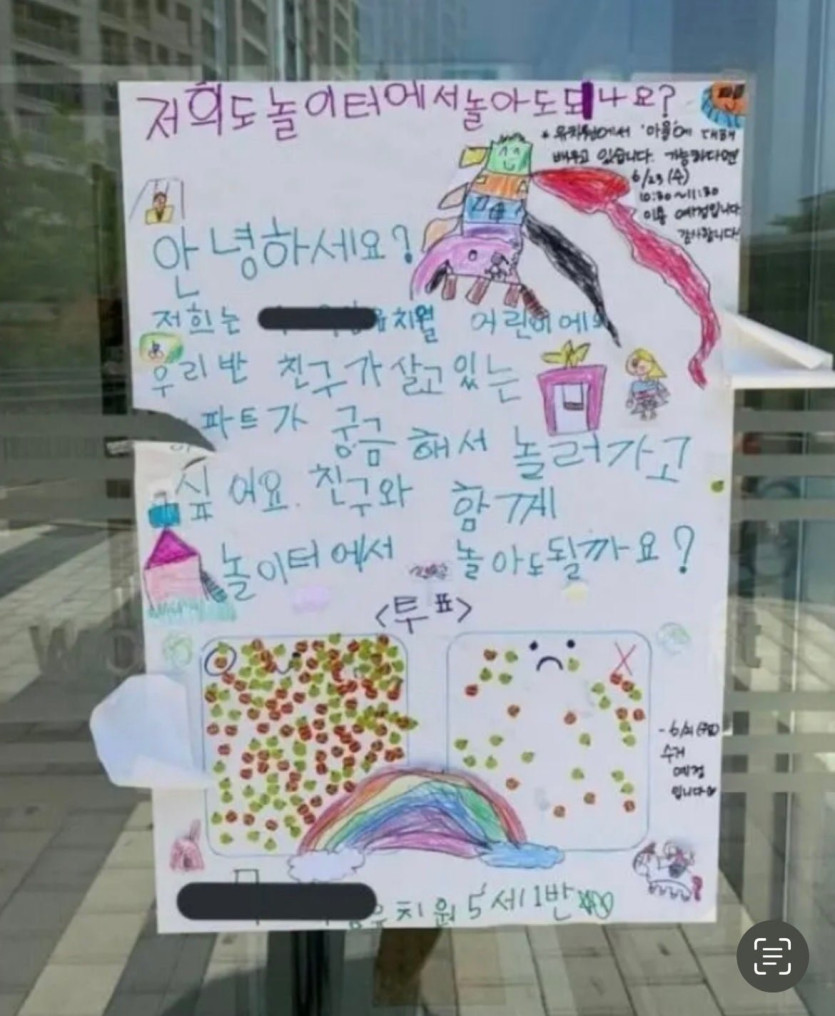 저희도 놀이터에서 놀아도 되나요?
* 유치원에서 '마을'에 대해
배우고 있습니다. 가능하다면
6/23 (수)
10:30~11:30
이용 예정입니다
감사합니다!
안녕하세요?
저희는 유치원 어린이에요
우리반 친구가 살고 있는
파트가 궁금해서 놀러가고
싶어요. 친구와 함께
놀이터에서 놀아도될까요?
<투표>
O X
수거
예정
입니다
유치원 5세1반